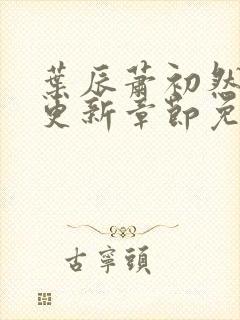 葉辰蕭初然
更新章節免
古寧頭